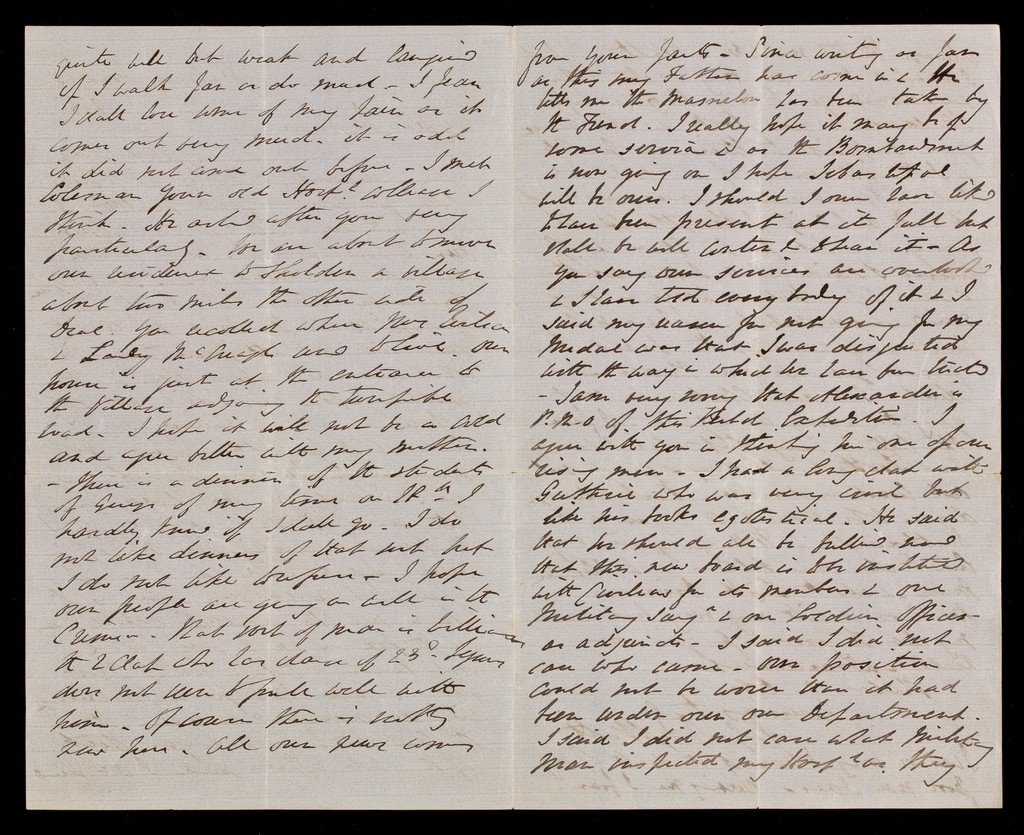 quite well but weak and languid
if I walk far or do much - I fear
I shall lose some of my hair as it
comes out very much. it is odd
it did not come out before - I met
Coleman your old Hosp.l colleague I
think. He asked after you very
particularly. We are about to move
our residence to Sholden a village
about two miles the other side of
Deal. You recollect where Mrs
& Lady used to live. Our
house is just at the entrance to
the village adjoining the turnpike
road. I hope it will not be so cold
and agree better with my mother.
- There is a dinner of the students
of Guys of my time on 12th I
hardly know if I shall go. I do
not like dinners of that sort but
I do not like to refuse - I hope
our people are going on well in the
Crimea. What sort of man is
the 2 Class who has charge of 23d.
does not seem to pull well with
him. Of course there is nothing
new here. All our news comes
from your parts - Since writing as far
as this my Father has come in & He
tells me the Mamelon has been taken by
the French. I really hope it may be of
some service & as the Bombardment
is now going on I hope Sebastopol
will be ours. I should I own have liked
to have been present at its fall but
shall be well content to hear it - As
you say our services are overlooked
& I have told every body of it & I
said my reason for not going for my
Medal was that I was disgusted
with the way in which we have been treated
- I am very sorry that Alexander is
P.M.O of this Expedition. I
agree with you in thinking him one of our
rising men - I had a long chat with
Guthrie who was very civil but
like his books egotistical. He said
that we should all be better now
that this new board is to be instituted
with Civilians for its members & one
Military Surg.n & one Soldier Officer
as adjuncts - I said I did not
care who came - our position
could not be worse than it had
been under our own Department.
I said I did not care what Military
Man inspected my Hosp.l as they